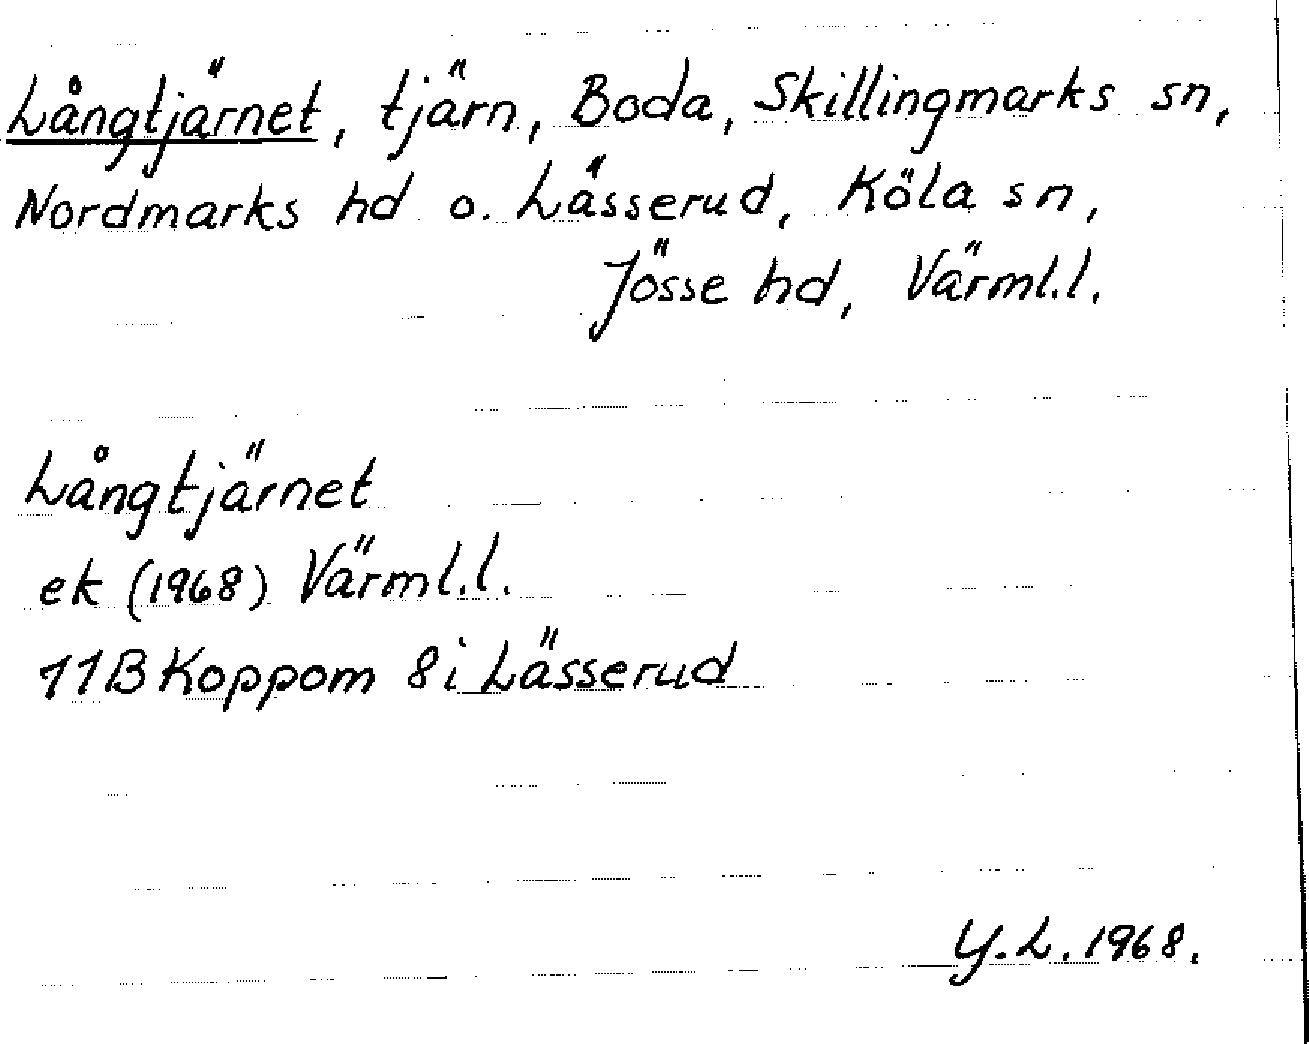 Långtjärnet, tjärn, Boda, Skillingmarks sn,
Nordmarks hd o. Lässerud, Köla sn,
Jösse hd, Värml.l.
Långtjärnet
ek (1968) Värml.l.
11B Koppom 8i Lässerud
Y.L. 1968.